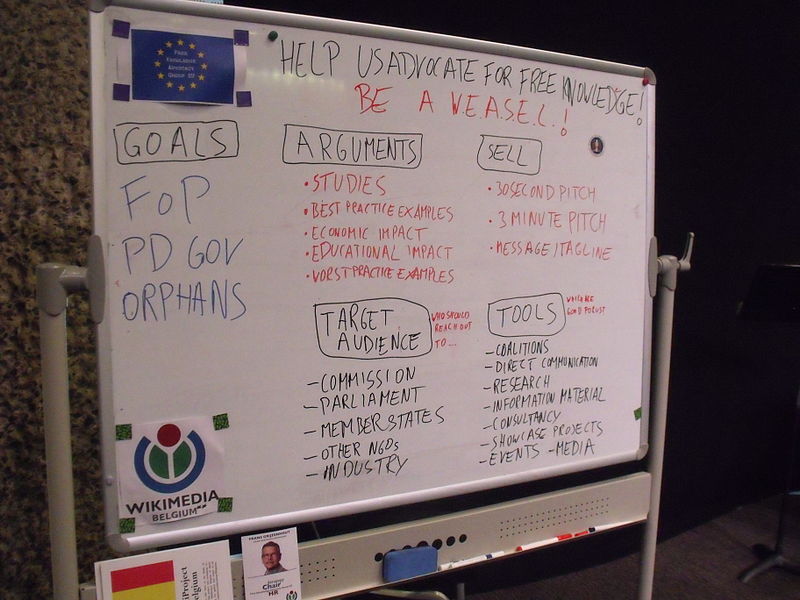 FREE
KNOWLEDGE
ADVOCACY
GROUP EU
HELP US ADVOCATE FOR FREE KNOWLEDGE!
BE A W.E.A.S.E.L.!
GOALS
FoP
PD GOV
ORPHANS
ARGUMENTS
• STUDIES
• BEST PRACTICE EXAMPLES
• ECONOMIC IMPACT
• EDUCATIONAL IMPACT
• WORST PRACTICE EXAMPLES
SELL
• 30 SECOND PITCH
• 3 MINUTE PITCH
• MESSAGE / TAGLINE
TARGET
AUDIENCE
WHO SHOULD
REACH OUT
TO ...
– COMMISSION
– PARLIAMENT
– MEMBER STATES
– OTHER NGOs
– INDUSTRY
TOOLS
WHICH ARE
GOOD FOR US?
– COALITIONS
– DIRECT COMMUNICATION
– RESEARCH
– INFORMATION MATERIAL
– CONSULTANCY
– SHOWCASE PROJECTS
– EVENTS – MEDIA
WIKIMEDIA
BELGIUM
iProject
Belgium
Chair
HR